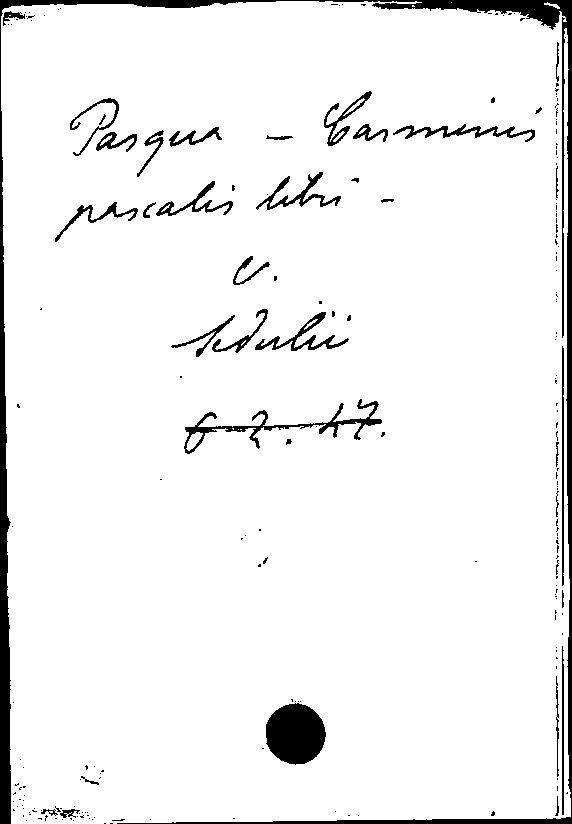 Pasqua - Carminis
pascalis libri -
v.
Sedulii
6 2. 47.